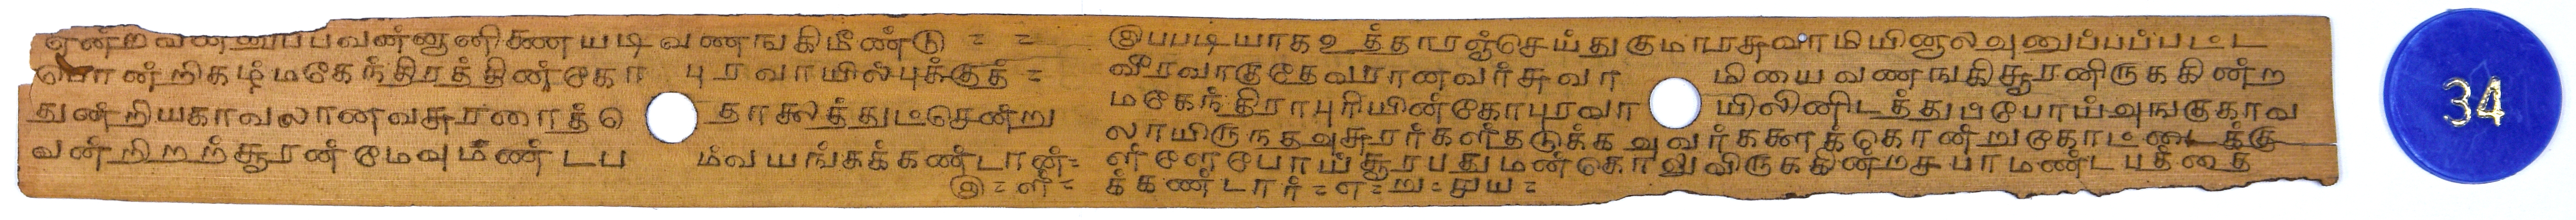 ஏன்றவனனுபபவன்னூனிகணயடிவணஙகிமீண்டு = =
பொன்றிகழ்மகேந்திரத்தின்கோபுரவாயில்புக்குத் =
துன்றியகாவலானவசுரரைத்தொதாகலத்துட்சென்று
வன்றிறற்சூரன்மேவுமண்டபம்வயங்கக்கண்டான்=
இப்படியாகஉத்தாரஞ்செய்துகுமாரசுவாமியினாலஅனுப்பப்பட்ட
வீரவாகுதேவரானவர்சுவாமியைவணஙகிசூரனிருககின்ற
மகேந்திராபுரியின்கோபுரவாயிலினிடத்துப்போய்அஙகுகாவ
லாயிருநதஅசுரர்களதடுக்கஅவர்களைக்கொன்றுகோட்டைக்கு
ள்ளேபோய்சூரபதுமன்கொலுவிருககின்றசபாமண்டபத்தை
க்கண்டார்=எ=று=
34